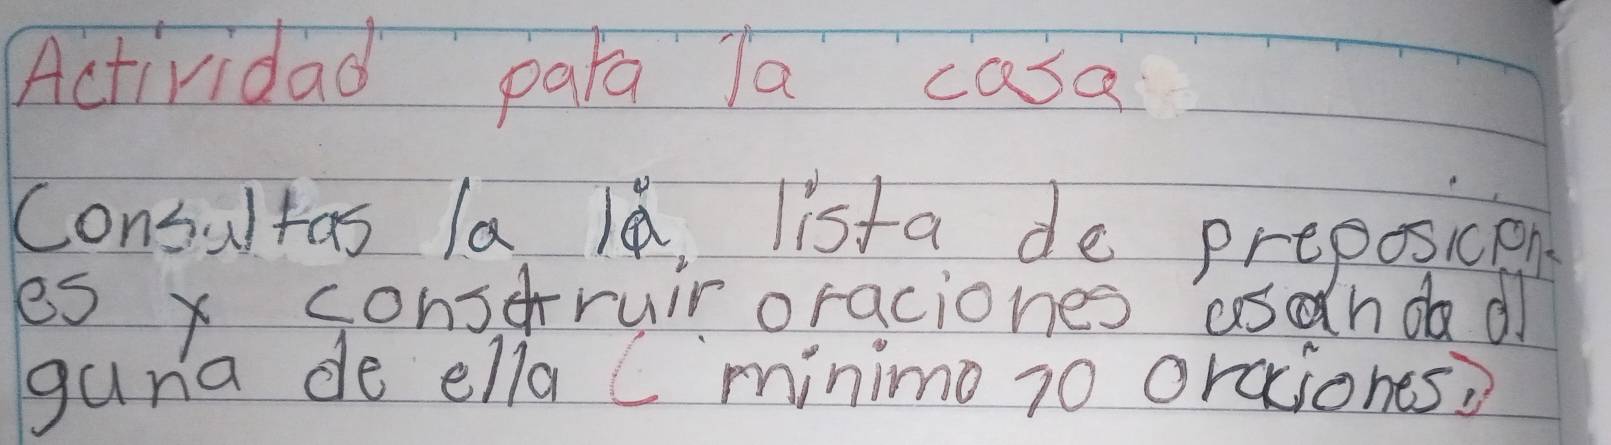 Actividad para la casa
Consultas la la, lista de preposicion-
es y construir oraciones usando al
guna de ella ( minimo 10 oraciones.)